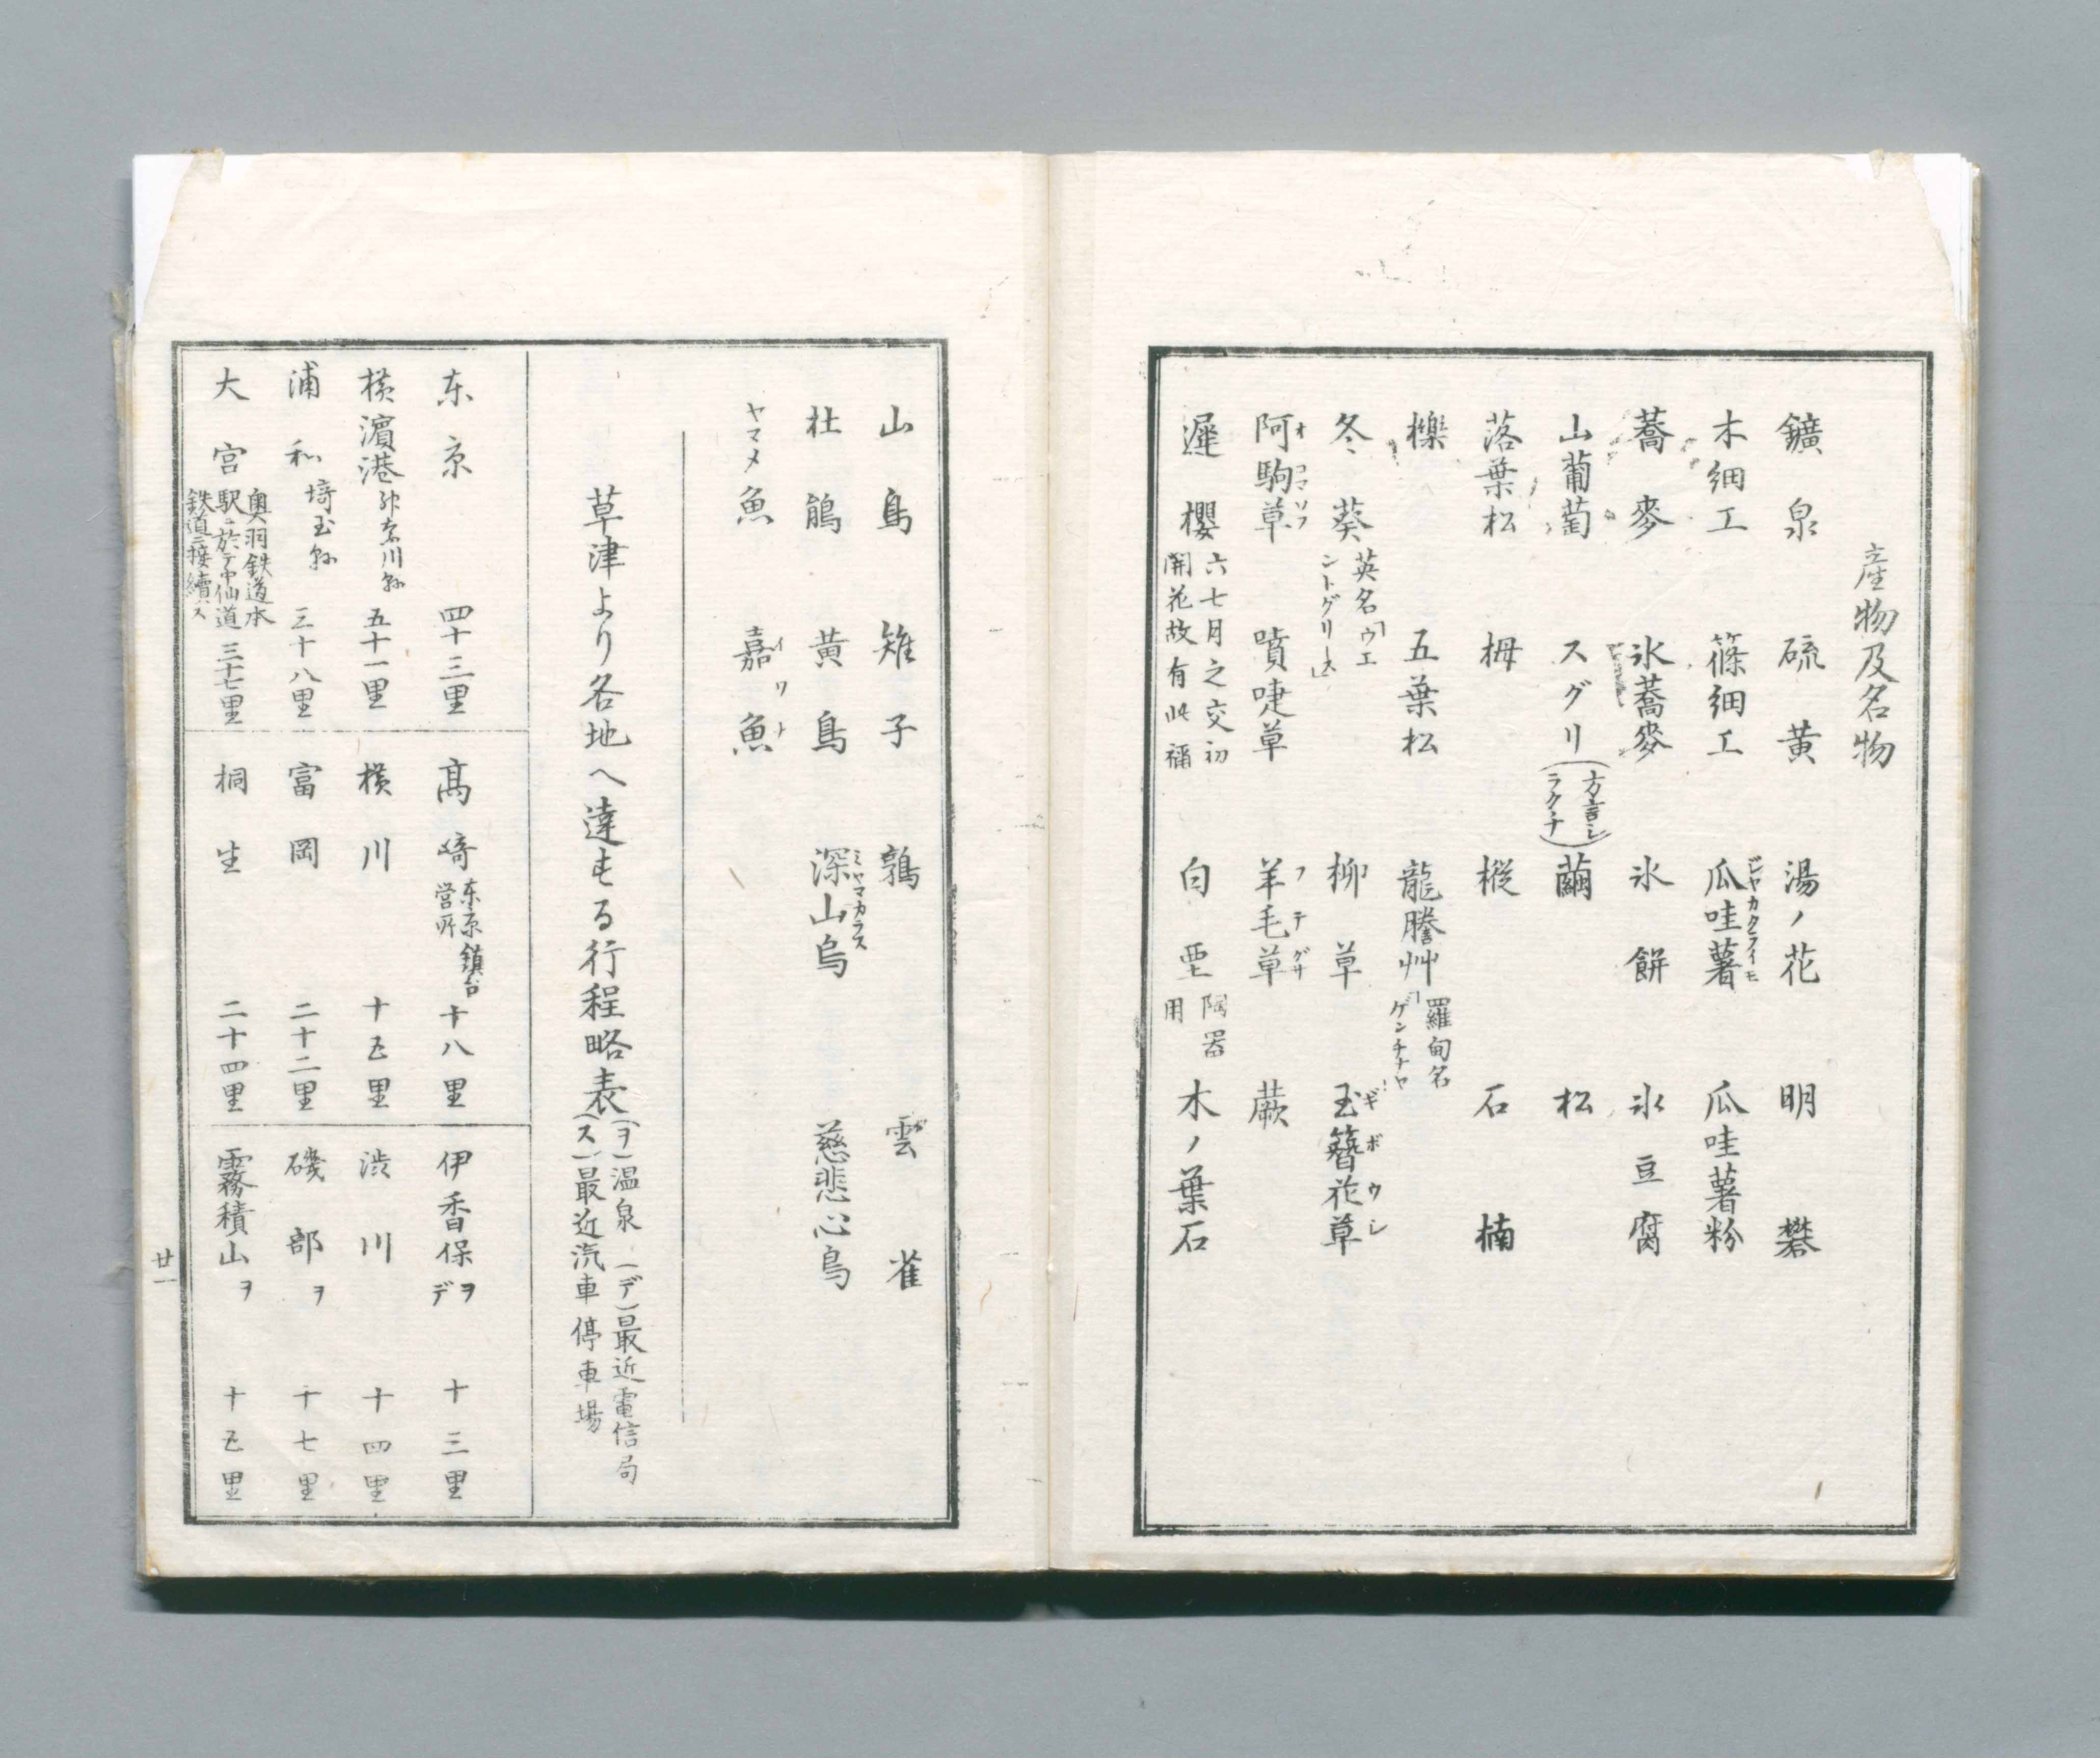 産物及名物
鑛泉　硫黄　湯ノ花　明礬
木細工　篠細工　瓜哇薯　瓜哇薯粉
ジヤカタライモ
蕎麥　氷蕎麥　氷餅　氷豆腐
山葡萄　スグリ　繭　松
(方言シ
ラクチ)
落葉松　栂　樅　石楠
櫟　五葉松　龍膽艸
羅甸名
「ゲンチナヤ」
冬葵　柳草　玉簪花草
英名「ウエ
ントグリース」
ギボウシ
阿駒草　噴嚏草　羊毛草　蕨
オコマソフ
フデグサ
遅櫻　白堊　木ノ葉石
六七月之交初
開花故有此稱
陶器
用
山鳥　雉子　鶉　雲雀
杜鵑　黄鳥　深山烏　慈悲心鳥
ミヤマカラス
ヤマメ魚　嘉魚
イワナ
草津より各地へ達する行程略表
(ヲ)温泉　(デ)最近電信局
(ス)最近汽車停車場
东京　四十三里　高崎　十八里　伊香保　十三里
东京鎮台
営所
ヲ
デ
横濵港　五十一里　横川　十五里　渋川　十四里
神奈川縣
浦和　三十八里　富岡　二十二里　磯部ヲ　十七里
埼玉縣
大宮　三十七里　桐生　二十四里　霧積山ヲ　十五里
奥羽鉄道本
駅ニ於テ中仙道
鉄道ニ接續ス
廿一